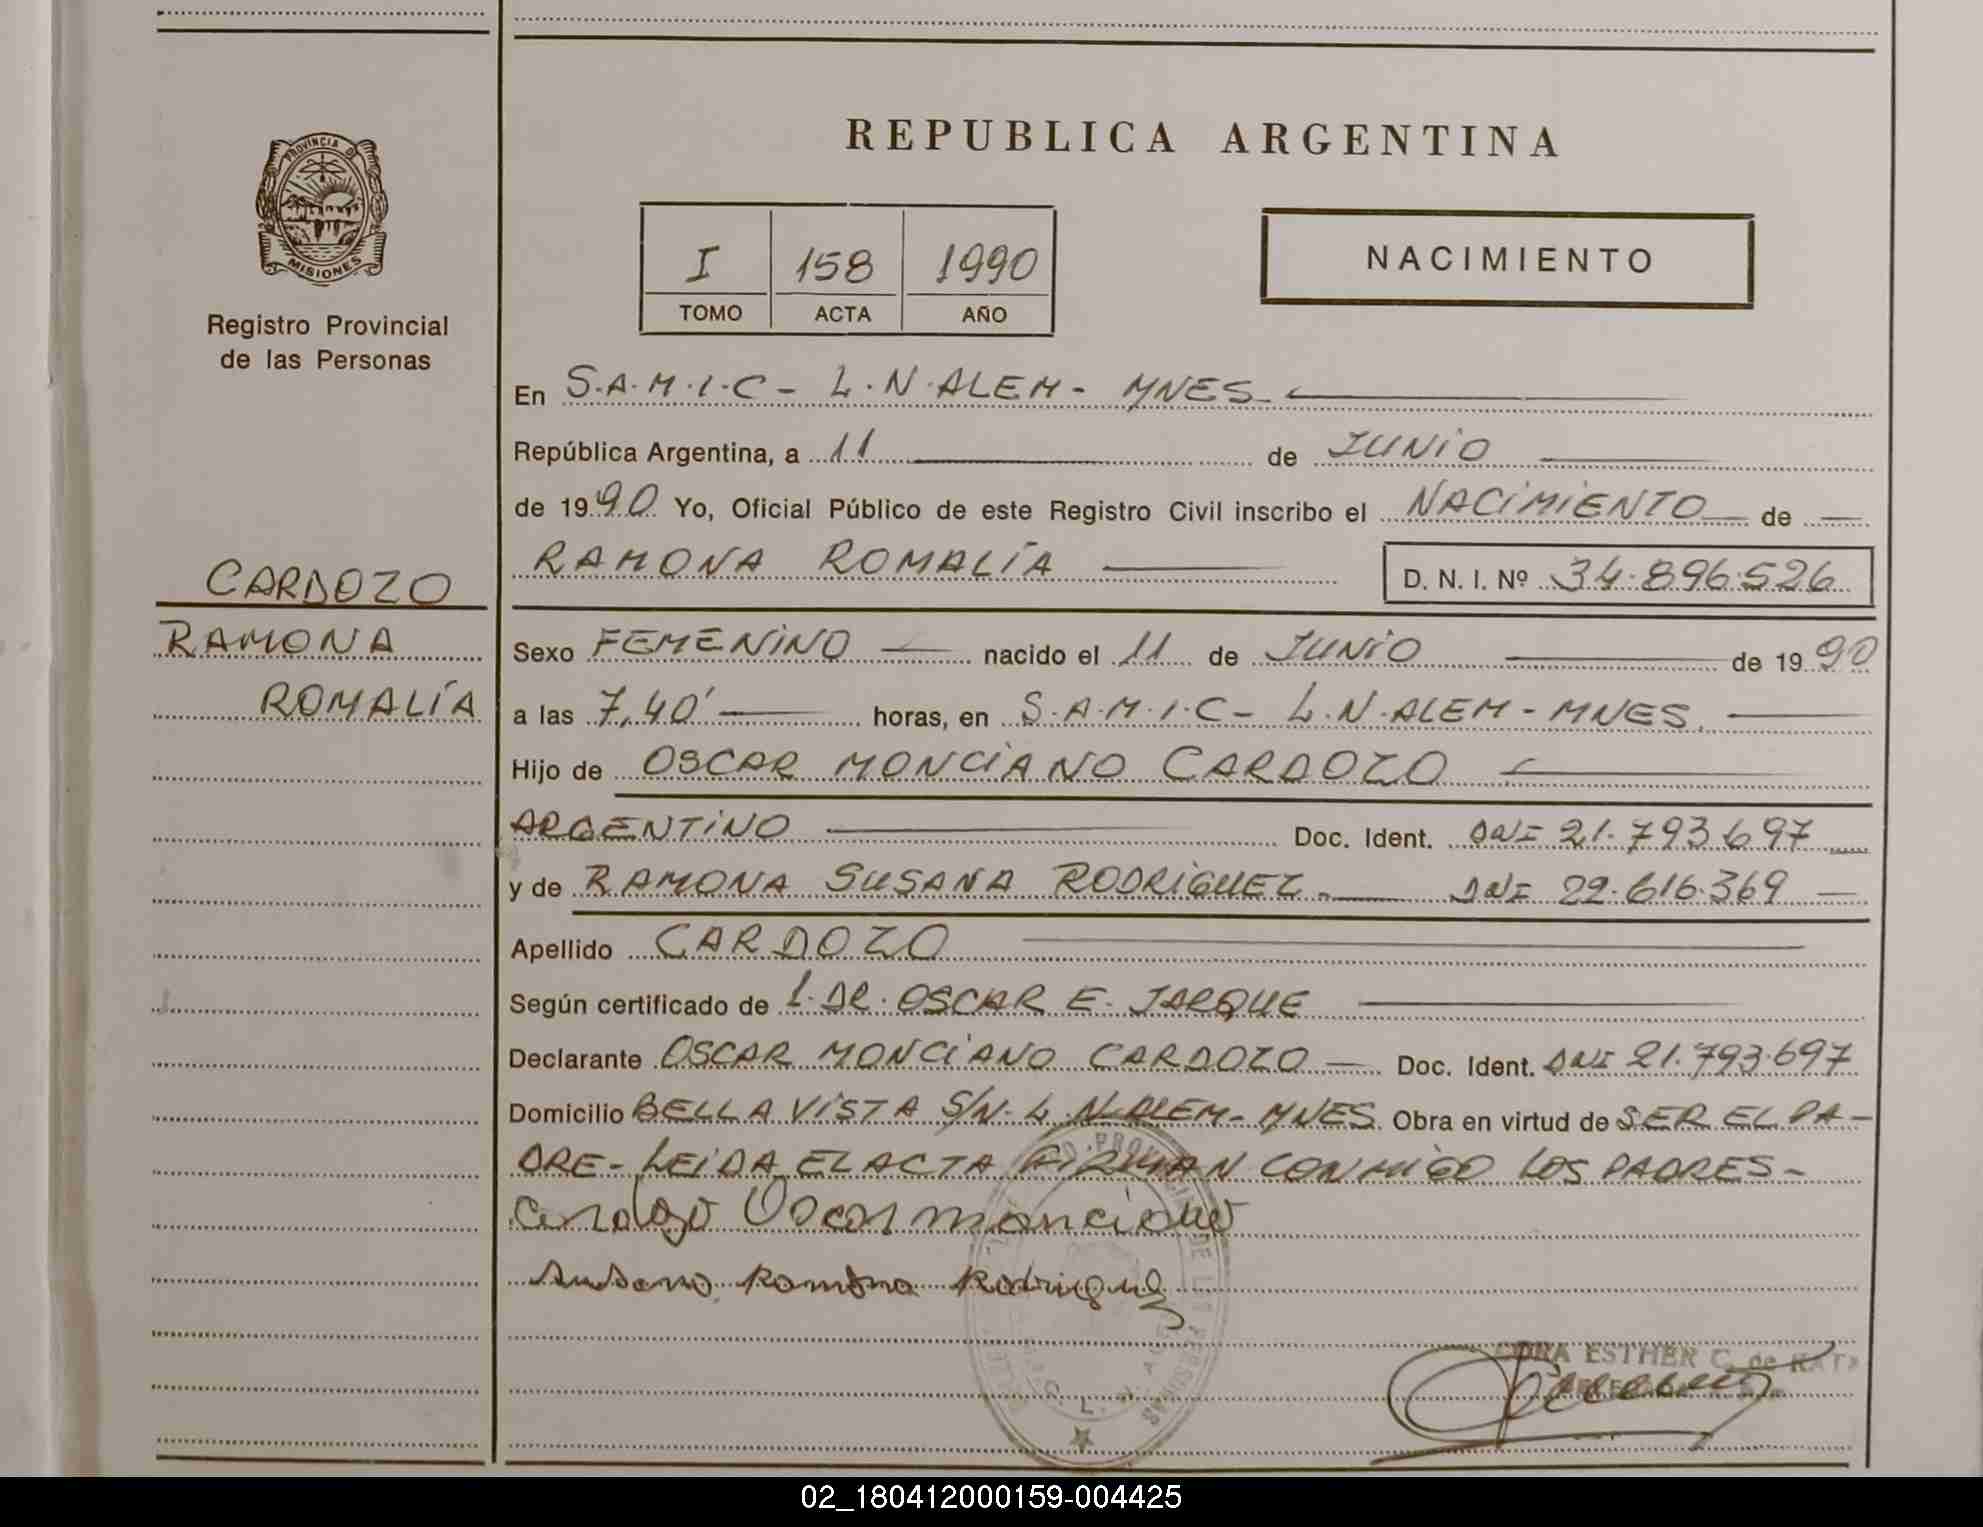 REPUBLICA ARGENTINA
PROVINCIA DE
MISIONES
Registro Provincial
de las Personas
I 158 1990
TOMO ACTA AÑO
NACIMIENTO
En S.A.M.I.C - L.N.ALEM - MNES
República Argentina, a 11 de JUNIO
de 1990 Yo, Oficial Público de este Registro Civil inscribo el NACIMIENTO de
RAMONA ROMALÍA D. N. I. Nº 34.896.526
CARDOZO
RAMONA
ROMALÍA
Sexo FEMENINO nacido el 11 de JUNIO de 1990
a las 7,40' horas, en S.A.M.I.C - L.N.ALEM - MNES.
Hijo de OSCAR MONCIANO CARDOZO
ARGENTINO Doc. Ident. DNI 21.793.697
y de RAMONA SUSANA RODRIGUEZ DNI 22.616.369
Apellido CARDOZO
Según certificado de L. DR. OSCAR E. JARQUE
Declarante OSCAR MONCIANO CARDOZO Doc. Ident. DNI 21.793.697
Domicilio BELLA VISTA S/N. L.N.ALEM - MNES. Obra en virtud de SER EL PA-
DRE - LEIDA EL ACTA FIRMAN CONMIGO LOS PADRES -
Cardozo Oscar monciano
Susana Ramona Rodriguez
ESTHER C. de
02_180412000159-004425